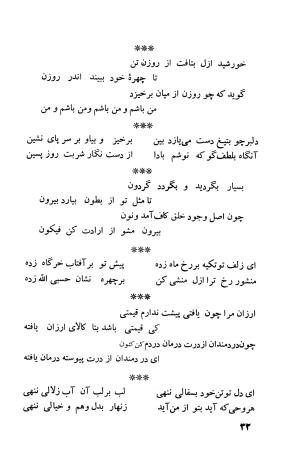 ***
خورشید ازل بتافت از روزن تن
تا چهرهٔ خود ببیند اندر روزن
گوید که چو روزن از میان برخیزد
من باشم و من باشم ومن باشم و من
***
دلبرچو بتیغ دست می‌یازد بین برخیز و بیاو بر سر پای نشین
آنگاه بلطف‌گو که نوشم بادا از دست نگار شربت روز پسین
***
بسیار بگردید و بگردد گردون
تا مثل تو از بطون بیارد بیرون
چون اصل وجود خلق کاف‌آمد ونون
بیرون مشو از ارادت کن فیکون
***
ای زلف توتکیه بررخ ماه زده پیش تو برآفتاب خرگاه زده
منشور رخ ترا ازل منشی کن برچهره نشان حسبی الله زده
***
ارزان مرا چون یافتی پیشت ندارم قیمتی
کی قیمتی باشد بتا کالای ارزان یافته
چون‌دردمندان ازدرت درمان دردم کن کنون
ای در دمندان از درت پیوسته درمان یافته
***
ای دل توتن‌خود بسفالی ننهی لب برلب آن آب زلالی ننهی
هروحی‌که آید بتو از من‌آید زنهار بدل وهم و خیالی ننهی
۳۲